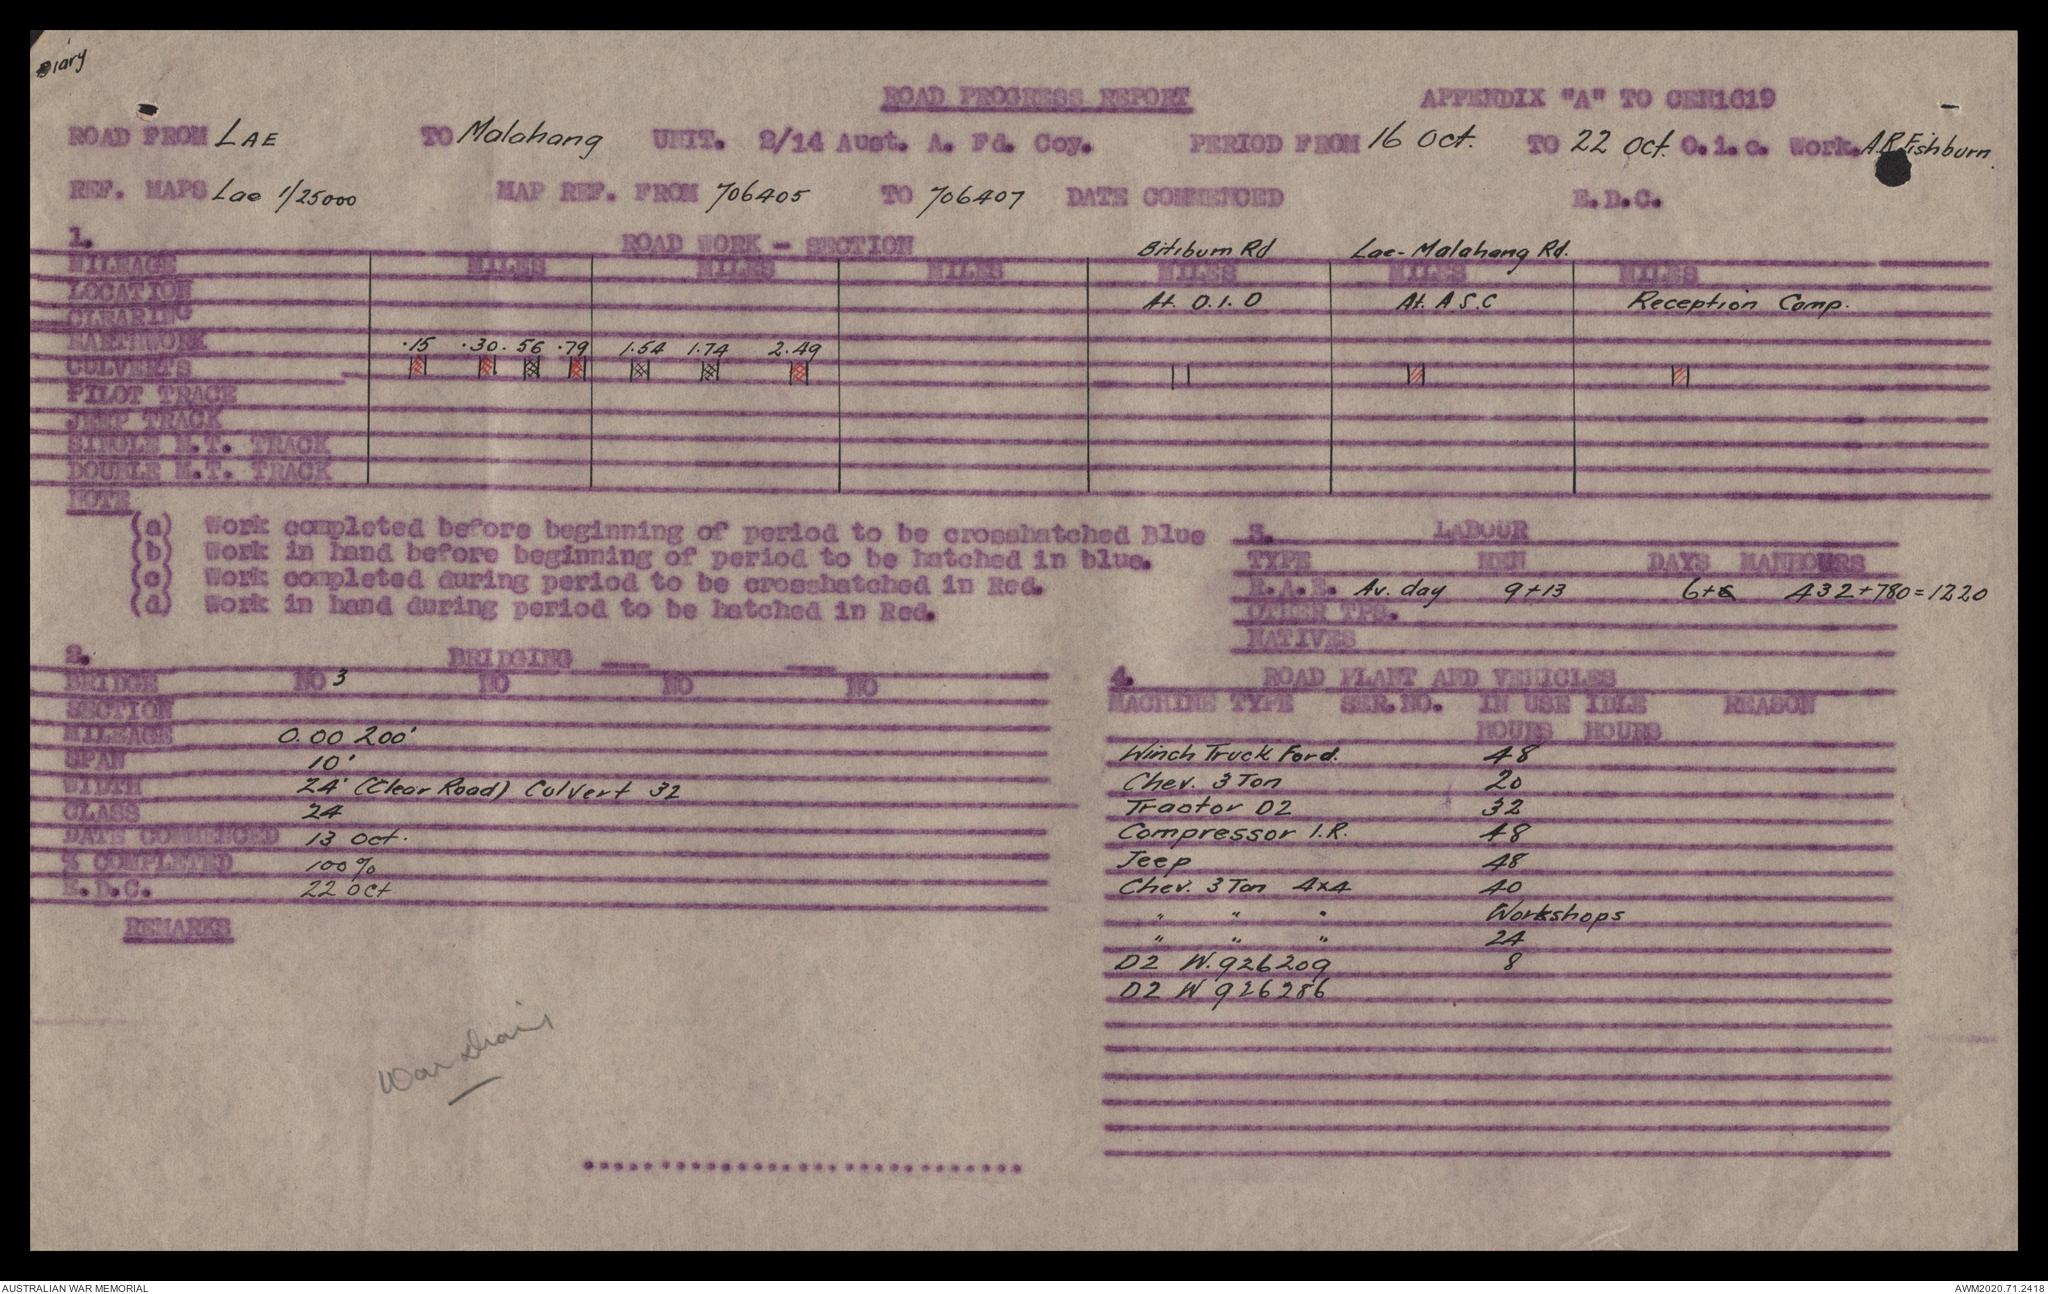 Diary
ROAD PROGRESS REPORT APPENDIX "A" TO CEN1619
ROAD FROM LAE TO Malahang UNIT. 2/14 Aust. A. Fd. Coy. PERIOD FROM 16 Oct. TO 22 Oct. O.i.c. Work. A.R.Fishburn.
REF. MAPS Lae 1/25000 MAP REF. FROM 706405 TO 706407 DATE COMMENCED E.D.C.
1. ROAD WORK - SECTION Bitibum Rd Lae-Malahang Rd.
MILEAGE MILES MILES MILES MILES MILES MILES
LOCATION At. O.I.O At. A.S.C Reception Camp.
CLEARING
EARTHWORK .15 .30. 56 .79 1.54 1.74 2.49
CULVERTS
PILOT TRACE
JEEP TRACK
SINGLE M.T. TRACK
DOUBLE M.T. TRACK
NOTE
(a) Work completed before beginning of period to be crosshatched Blue
(b) Work in hand before beginning of period to be hatched in blue.
(c) Work completed during period to be crosshatched in Red.
(d) Work in hand during period to be hatched in Red.
3. LABOUR
TYPE MEN DAYS MANHOURS
R.A.E. Av. day 9+13 6+6 432+780=1220
OTHER TPS.
NATIVES
2. BRIDGING
BRIDGE NO 3 NO NO NO
SECTION
MILEAGE 0.00 200'
SPAN 10'
WIDTH 24' (Clear Road) Culvert 32
CLASS 24
DATE COMMENCED 13 Oct.
% COMPLETED 100%
E.D.C. 22 Oct
REMARKS
War Diary
4. ROAD PLANT AND VEHICLES
MACHINE TYPE SER.NO. IN USE IDLE REASON
HOURS HOURS
Winch Truck Ford. 48
Chev. 3 Ton 20
Tractor D2 32
Compressor I.R. 48
Jeep 48
Chev. 3 Ton 4x4 40
" " " Workshops
" " " 24
D2 W.926209 8
D2 W 926286
AUSTRALIAN WAR MEMORIAL AWM2020.71.2418